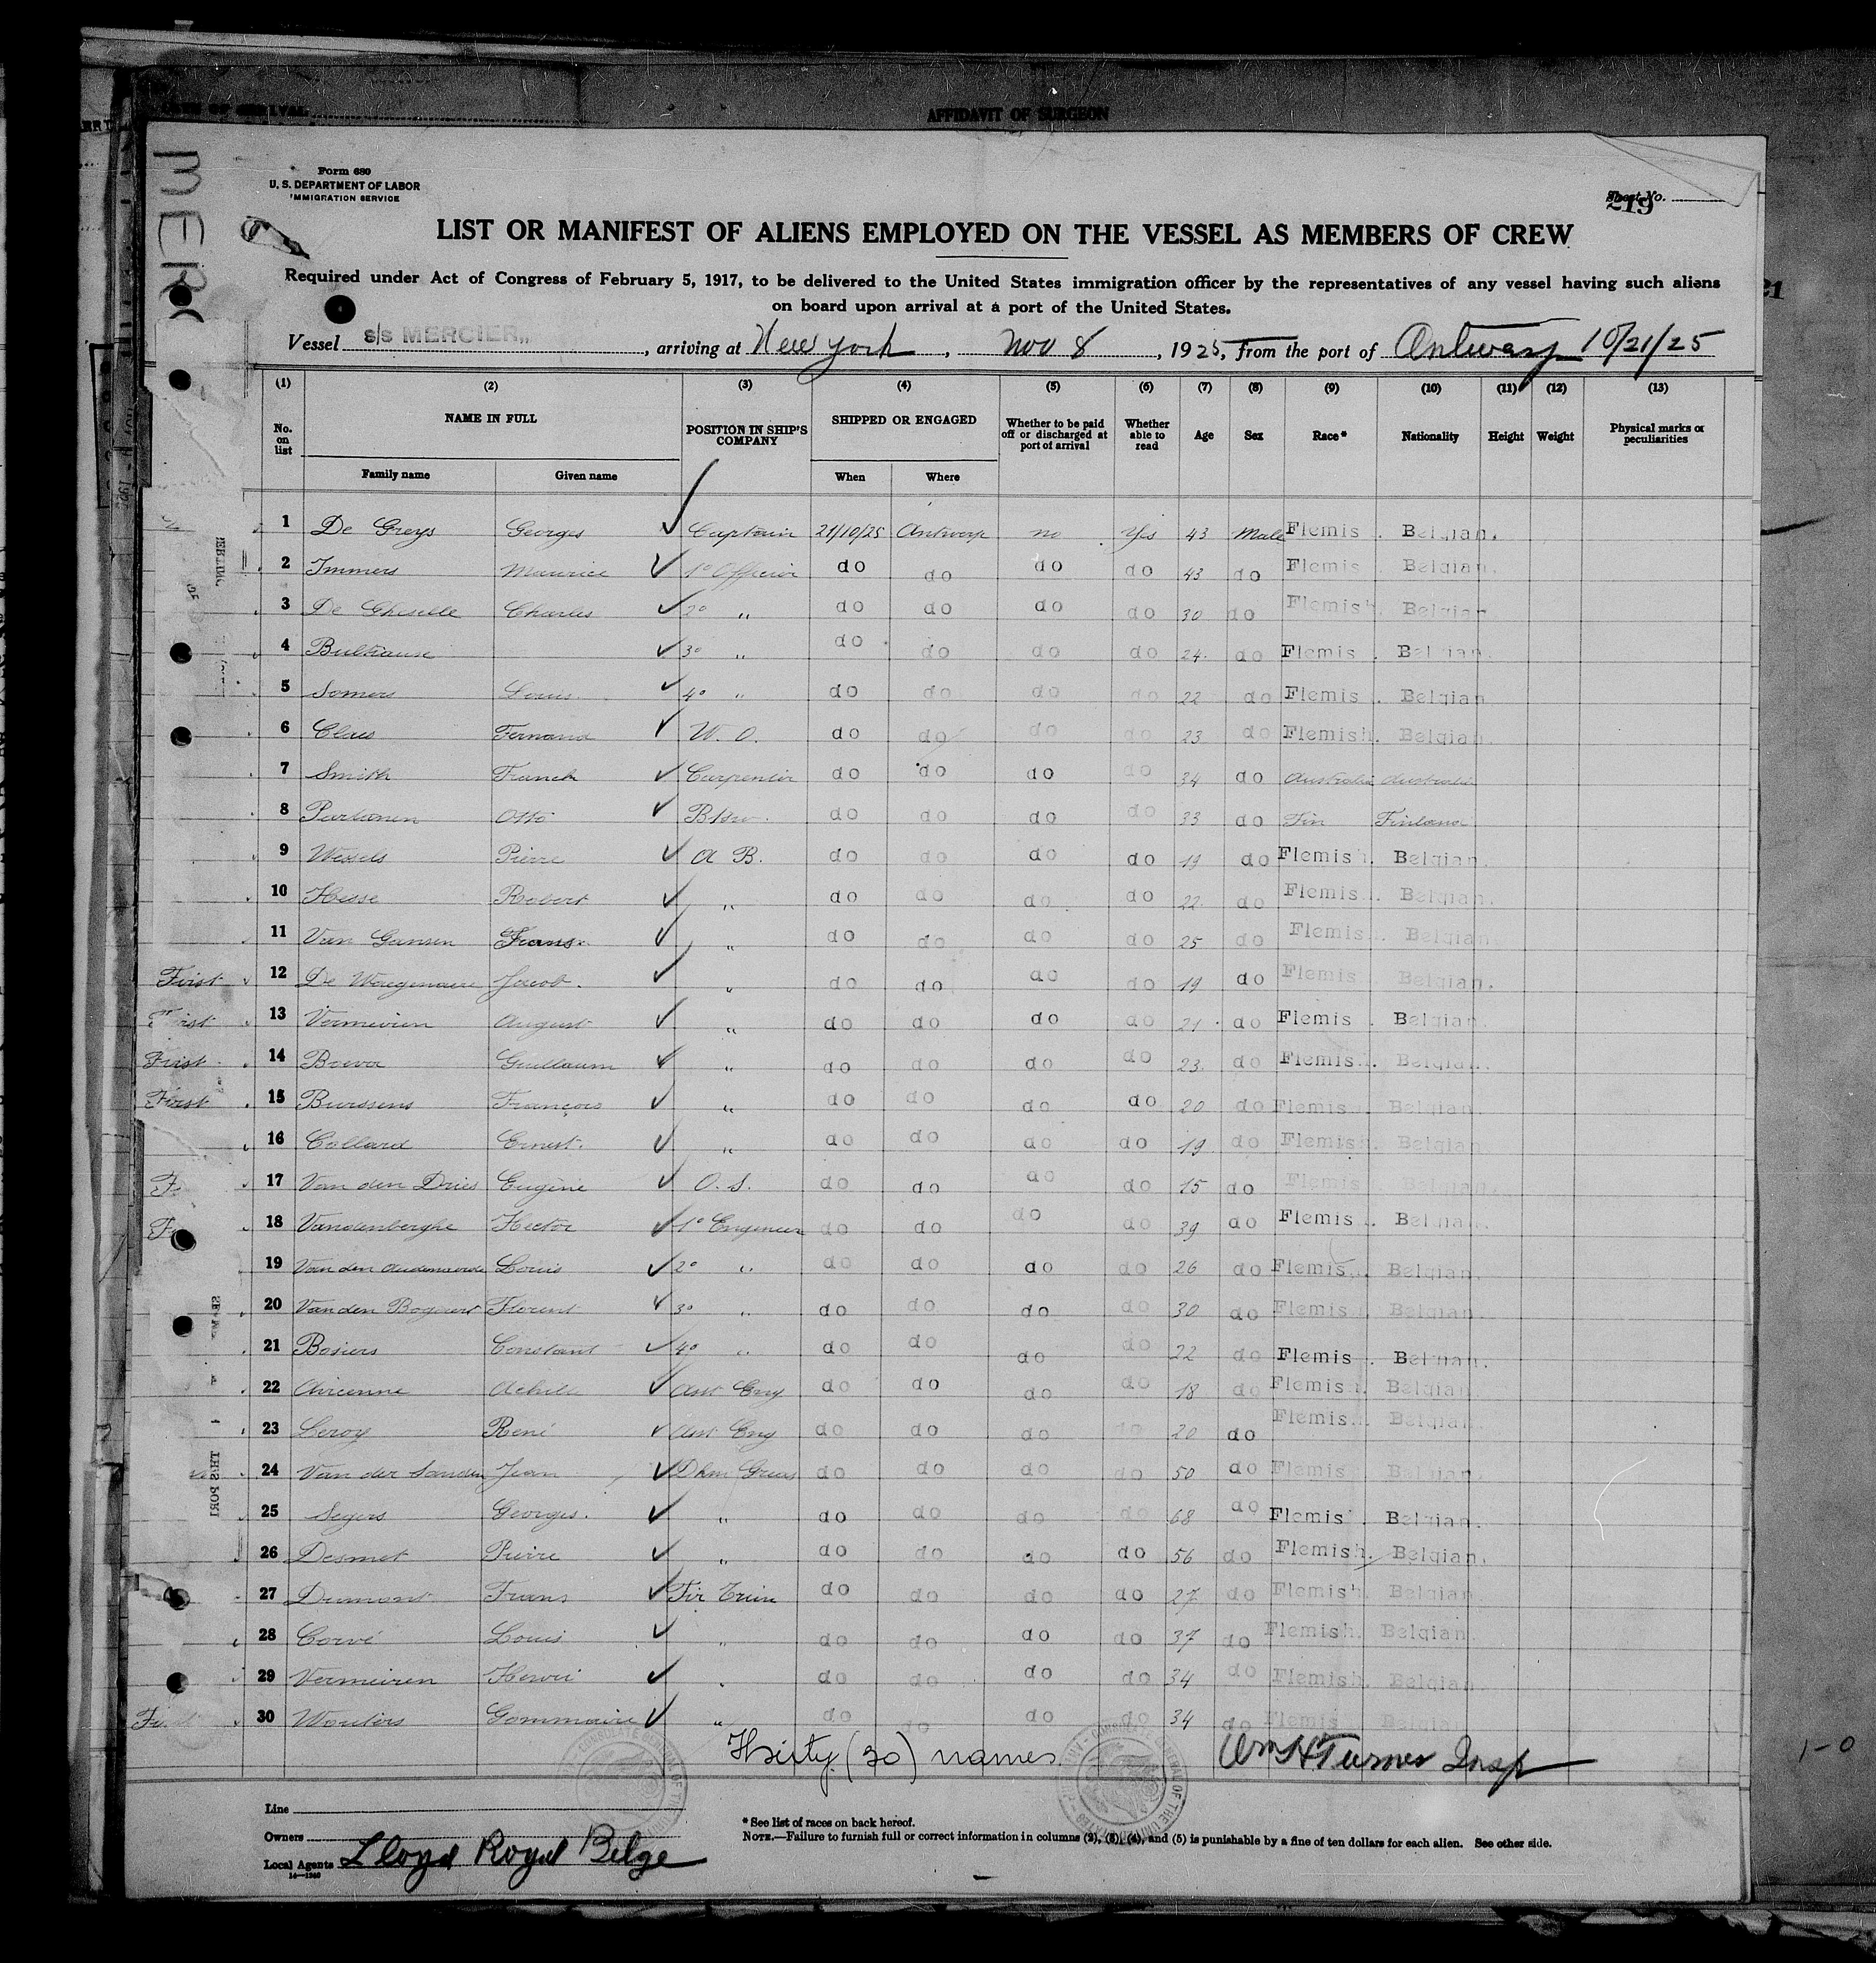 AFFIDAVIT OF SURGEON
MERC
Form 680
U. S. DEPARTMENT OF LABOR
IMMIGRATION SERVICE
Sheet No.
219
LIST OR MANIFEST OF ALIENS EMPLOYED ON THE VESSEL AS MEMBERS OF CREW
Required under Act of Congress of February 5, 1917, to be delivered to the United States immigration officer by the representatives of any vessel having such aliens
on board upon arrival at a port of the United States.
Vessel s/s MERCIER,, , arriving at New York , Nov 8 , 1925, from the port of Antwerp 10/21/25
(1) (2) (3) (4) (5) (6) (7) (8) (9) (10) (11) (12) (13)
No. on list NAME IN FULL POSITION IN SHIP'S COMPANY SHIPPED OR ENGAGED Whether to be paid off or discharged at port of arrival Whether able to read Age Sex Race* Nationality Height Weight Physical marks or peculiarities
Family name Given name When Where
1 De Greys Georges Captain 21/10/25 Antwerp no Yes 43 Male Flemis . Belgian.
2 Immers Maurice 1° Officier do do do do 43 do Flemis . Belgian.
3 De Ghiselle Charles 2° " do do do do 30 do Flemish. Belgian
4 3° " do do do do 24 do Flemis . Belgian.
5 Somers Louis 4° " do do do do 22 do Flemis . Belgian
6 Claes Fernand W. O. do do do do 23 do Flemish. Belgian.
7 Smith Franck Carpenter do do do do 34 do Australia Australia
8 Purtonen Otto do do do do 33 do Fin Finland
9 Wessels Pierre A B. do do do do 19 do Flemish. Belgian.
10 Hesse Robert " do do do do 22 do Flemis . Belgian.
11 Van Gansen Frans " do do do do 25 do Flemis . Belgian.
First 12 De Waegenaere Jacob. " do do do do 19 do Flemis . Belgian.
First 13 Vermeiren August " do do do do 21 do Flemis . Belgian.
First 14 Boeva Guillaum " do do do do 23 do Flemis . Belgian.
First 15 Burssens François " do do do do 20 do Flemis . Belgian
16 Collard Ernest. " do do do do 19 do Flemis . Belgian
F. 17 Van den Dries Eugène O. S. do do do do 15 do Flemis . Belgian.
F 18 Vandenberghe Hector 1° Engineer do do do do 39 do Flemis . Belgian.
19 Van den Audenaerde Louis 2° " do do do do 26 do Flemis . Belgian.
20 Van den Bogaert Florent 3° " do do do do 30 do Flemis . Belgian.
21 Bosiers Constant 4° " do do do do 22 do Flemis . Belgian.
22 Achille Asst Eng do do do do 18 do Flemish. Belgian.
23 Leroy René Asst Eng do do do do 20 do Flemis . Belgian
24 Van der Sanden Jean Dkm Greas do do do do 50 do Flemis Belgian.
25 Segers Georges. " do do do do 68 do Flemis . Belgian.
26 Desmet Pierre " do do do do 56 do Flemish. Belgian.
27 Dumont Frans Fir Trim do do do do 27 do Flemish. Belgian
28 Corvé Louis " do do do do 37 do Flemish. Belgian
29 Vermeiren Henri " do do do do 34 do Flemish Belgian
30 Wouters Gommaire " do do do do 34 do Flemis Belgia
Thirty (30) names.
Wm H Turner Insp
1-0
Line
*See list of races on back hereof.
Owners
NOTE.—Failure to furnish full or correct information in columns (2), (3), (4), and (5) is punishable by a fine of ten dollars for each alien. See other side.
Local Agents Lloyd Royal Belge
14—1240